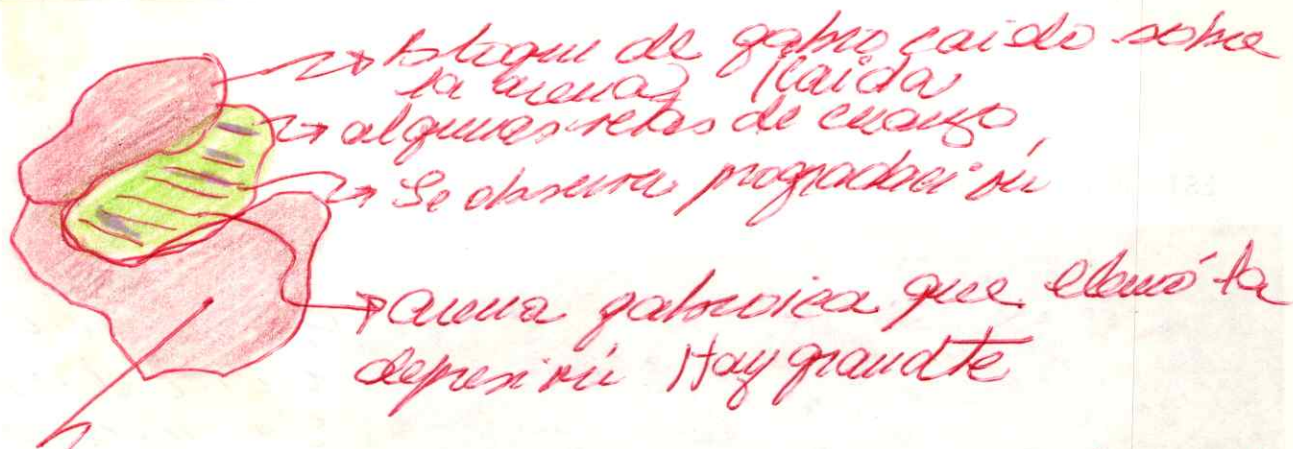 bloque de gabro caido sobre
la arena
algunas vetas de cuarzo
Se observa progradación
arena gabroica que llenó la
depresión Hay